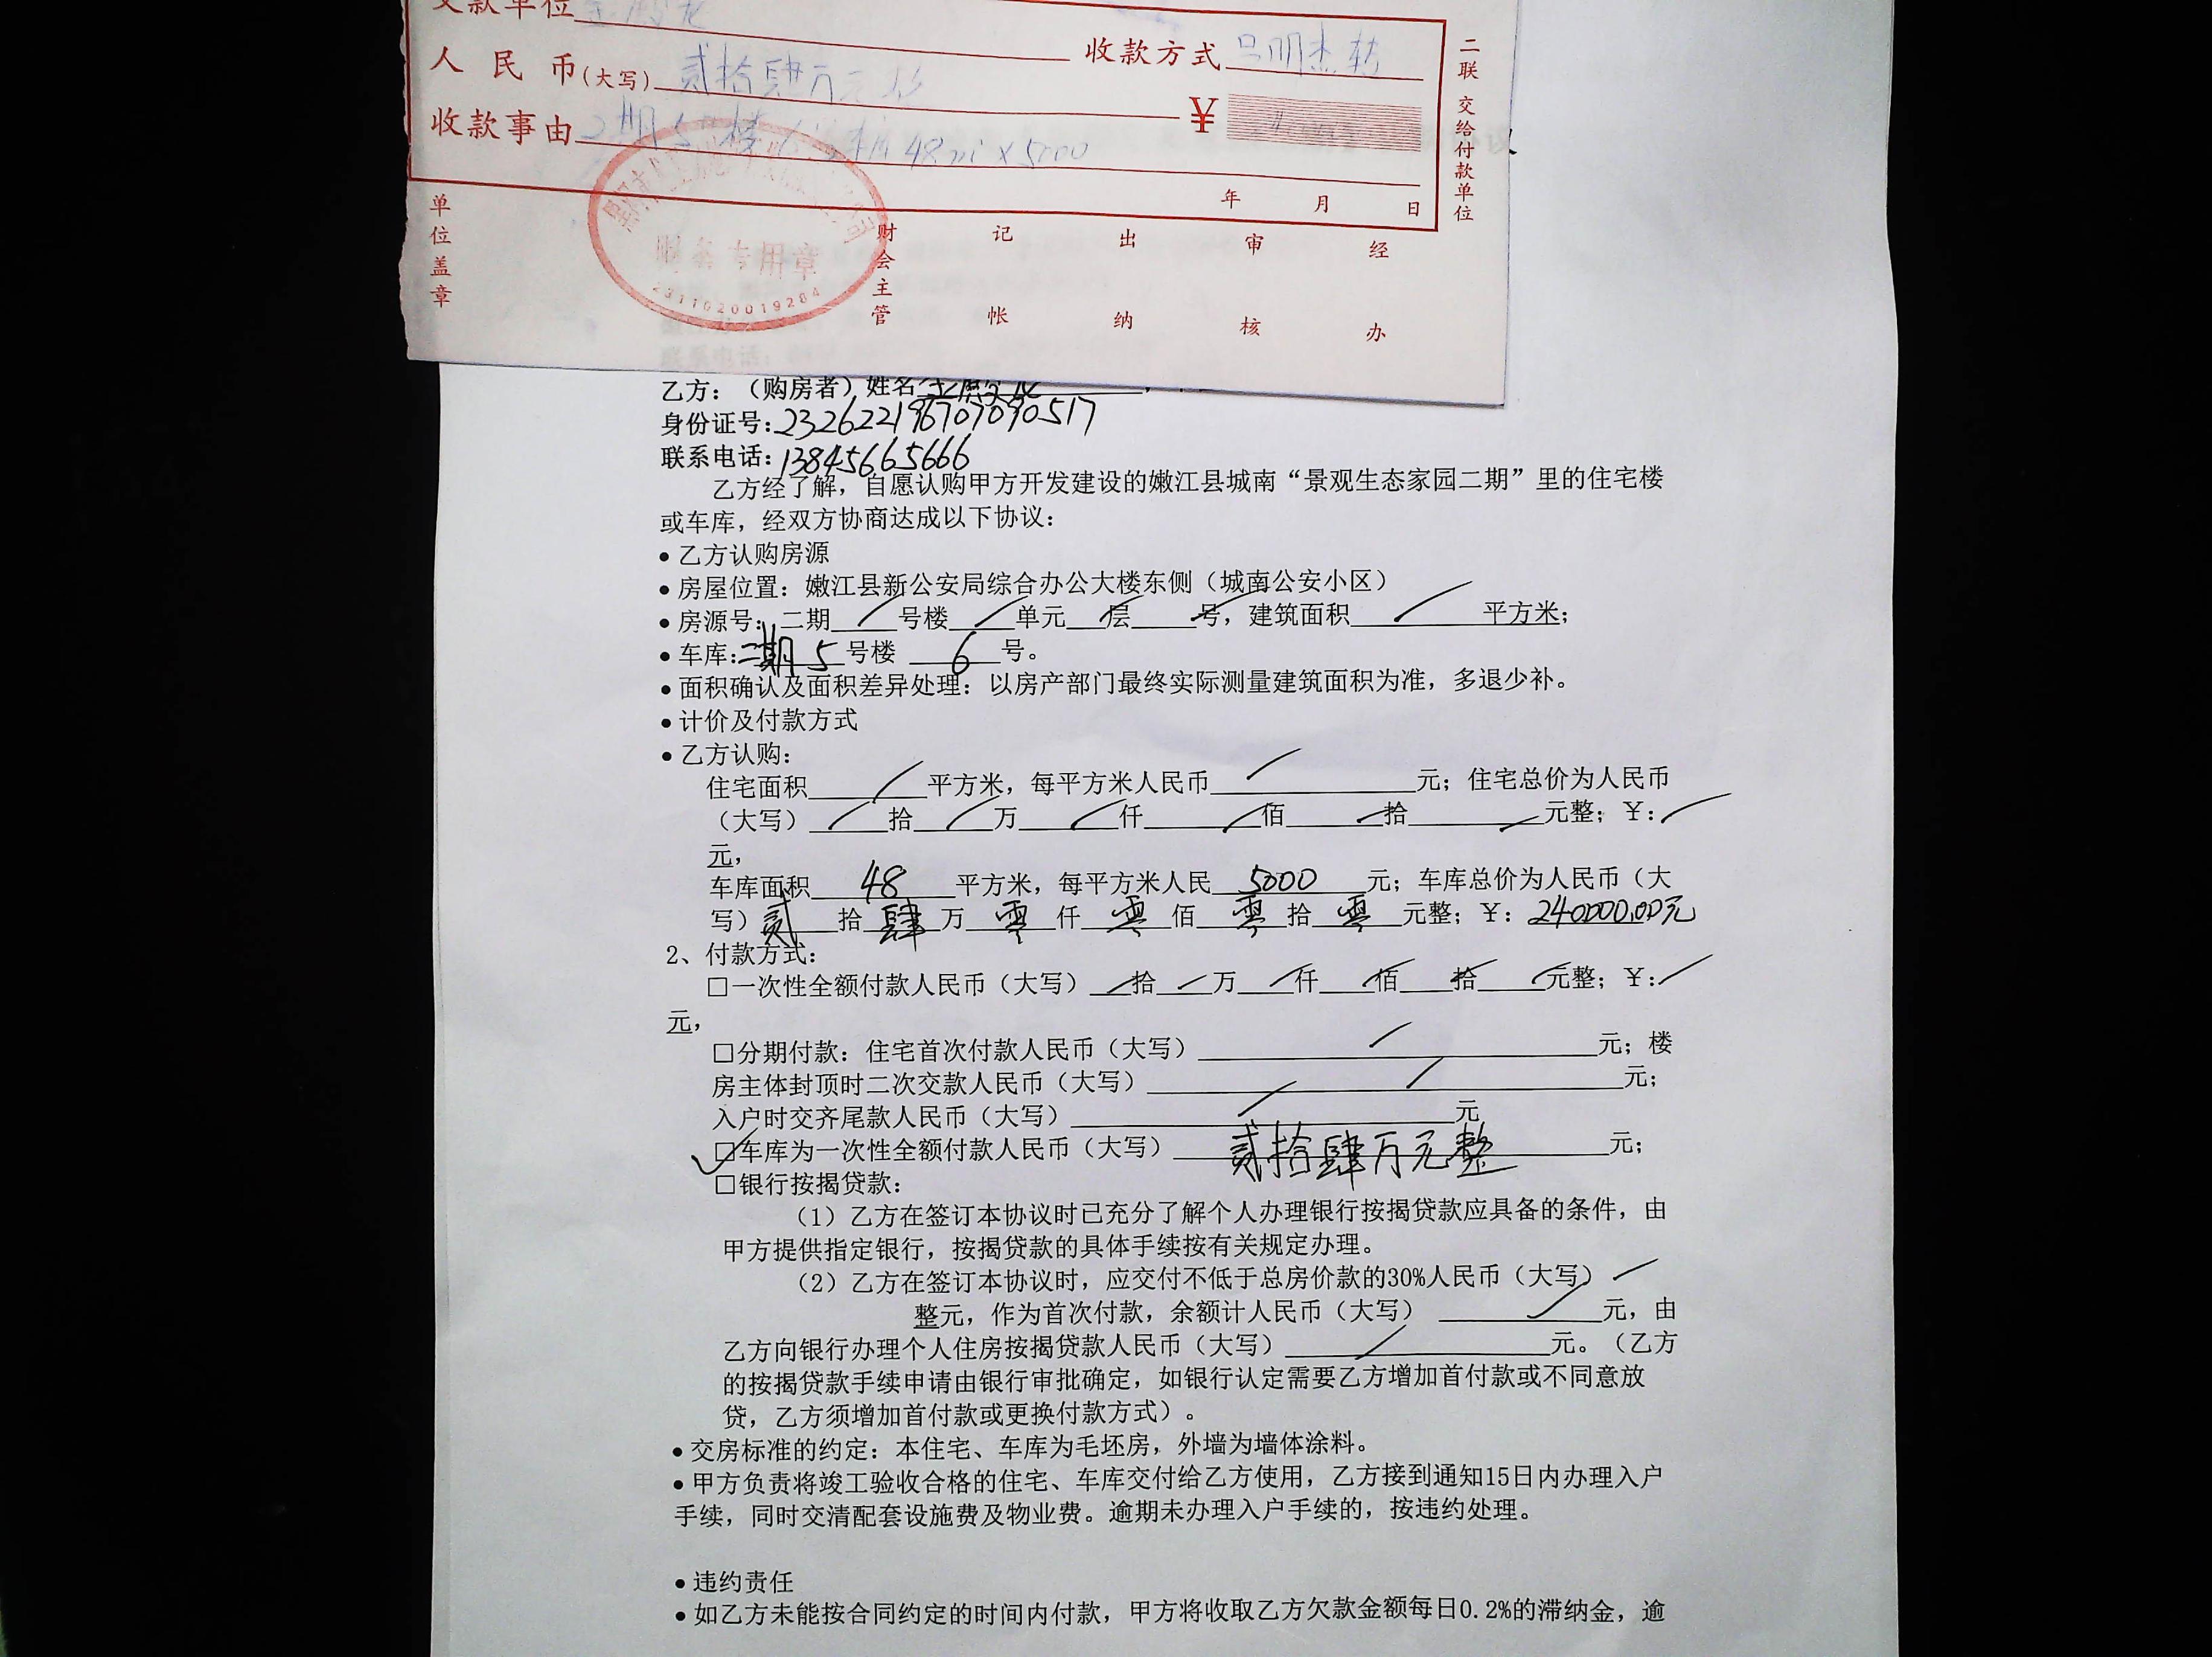 交款单位
收款方式
人民币(大写) 贰拾肆万元
收款事由 2期5楼6 车库 48m² x 5000
¥
年 月 日
二联 交给付款单位
单位盖章
财务专用章
2311020019284
财会主管 记帐 出纳 审核 经办
议
乙方：（购房者）姓名
身份证号:232622196707090517
联系电话:13845665666
乙方经了解，自愿认购甲方开发建设的嫩江县城南“景观生态家园二期”里的住宅楼
或车库，经双方协商达成以下协议：
•乙方认购房源
•房屋位置：嫩江县新公安局综合办公大楼东侧（城南公安小区）
•房源号：二期 / 号楼 / 单元 / 层 / 号，建筑面积 / 平方米；
•车库:二期 5 号楼 6 号。
•面积确认及面积差异处理：以房产部门最终实际测量建筑面积为准，多退少补。
•计价及付款方式
•乙方认购：
住宅面积 / 平方米，每平方米人民币 / 元；住宅总价为人民币
（大写） / 拾 / 万 / 仟 / 佰 / 拾 / 元整；￥: /
元，
车库面积 48 平方米，每平方米人民 5000 元；车库总价为人民币（大
写）贰 拾 肆 万 零 仟 零 佰 零 拾 零 元整；￥: 240000.00元
2、付款方式：
□一次性全额付款人民币（大写） / 拾 / 万 / 仟 / 佰 / 拾 / 元整；￥: /
元，
□分期付款：住宅首次付款人民币（大写） / 元；楼
房主体封顶时二次交款人民币（大写） / 元；
入户时交齐尾款人民币（大写） / 元
☑车库为一次性全额付款人民币（大写） 贰拾肆万元整 元；
□银行按揭贷款：
（1）乙方在签订本协议时已充分了解个人办理银行按揭贷款应具备的条件，由
甲方提供指定银行，按揭贷款的具体手续按有关规定办理。
（2）乙方在签订本协议时，应交付不低于总房价款的30%人民币（大写） /
整元，作为首次付款，余额计人民币（大写） / 元，由
乙方向银行办理个人住房按揭贷款人民币（大写） / 元。（乙方
的按揭贷款手续申请由银行审批确定，如银行认定需要乙方增加首付款或不同意放
贷，乙方须增加首付款或更换付款方式）。
•交房标准的约定：本住宅、车库为毛坯房，外墙为墙体涂料。
•甲方负责将竣工验收合格的住宅、车库交付给乙方使用，乙方接到通知15日内办理入户
手续，同时交清配套设施费及物业费。逾期未办理入户手续的，按违约处理。
•违约责任
•如乙方未能按合同约定的时间内付款，甲方将收取乙方欠款金额每日0.2%的滞纳金，逾